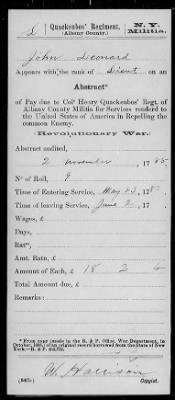 2 | Quackenbos' Regiment, (Albany County.) | N.Y. Militia.
John Leonard
Appears with the rank of Lieut. on an
Abstract*
of Pay due to Col. Henry Quackenbos' Regt. of
Albany County Militia for Services rendered to
the United States of America in Repelling the
common Enemy.
Revolutionary War.
Abstract audited,
2 November, 1785
No. of Roll, 9
Time of Entering Service, May 23, 178
Time of leaving Service, June 2, 17
Wages, £
Days,
Rat*,
Amt. Ratn, £
Amount of Each, £ 18 2 6
Total Amount due, £
Remarks:
* From copy (made in the R. & P. Office, War Department, in
October, 1889,) of an original record borrowed from the State of New
York.—R. & P.
W. Harrison
Copyist.